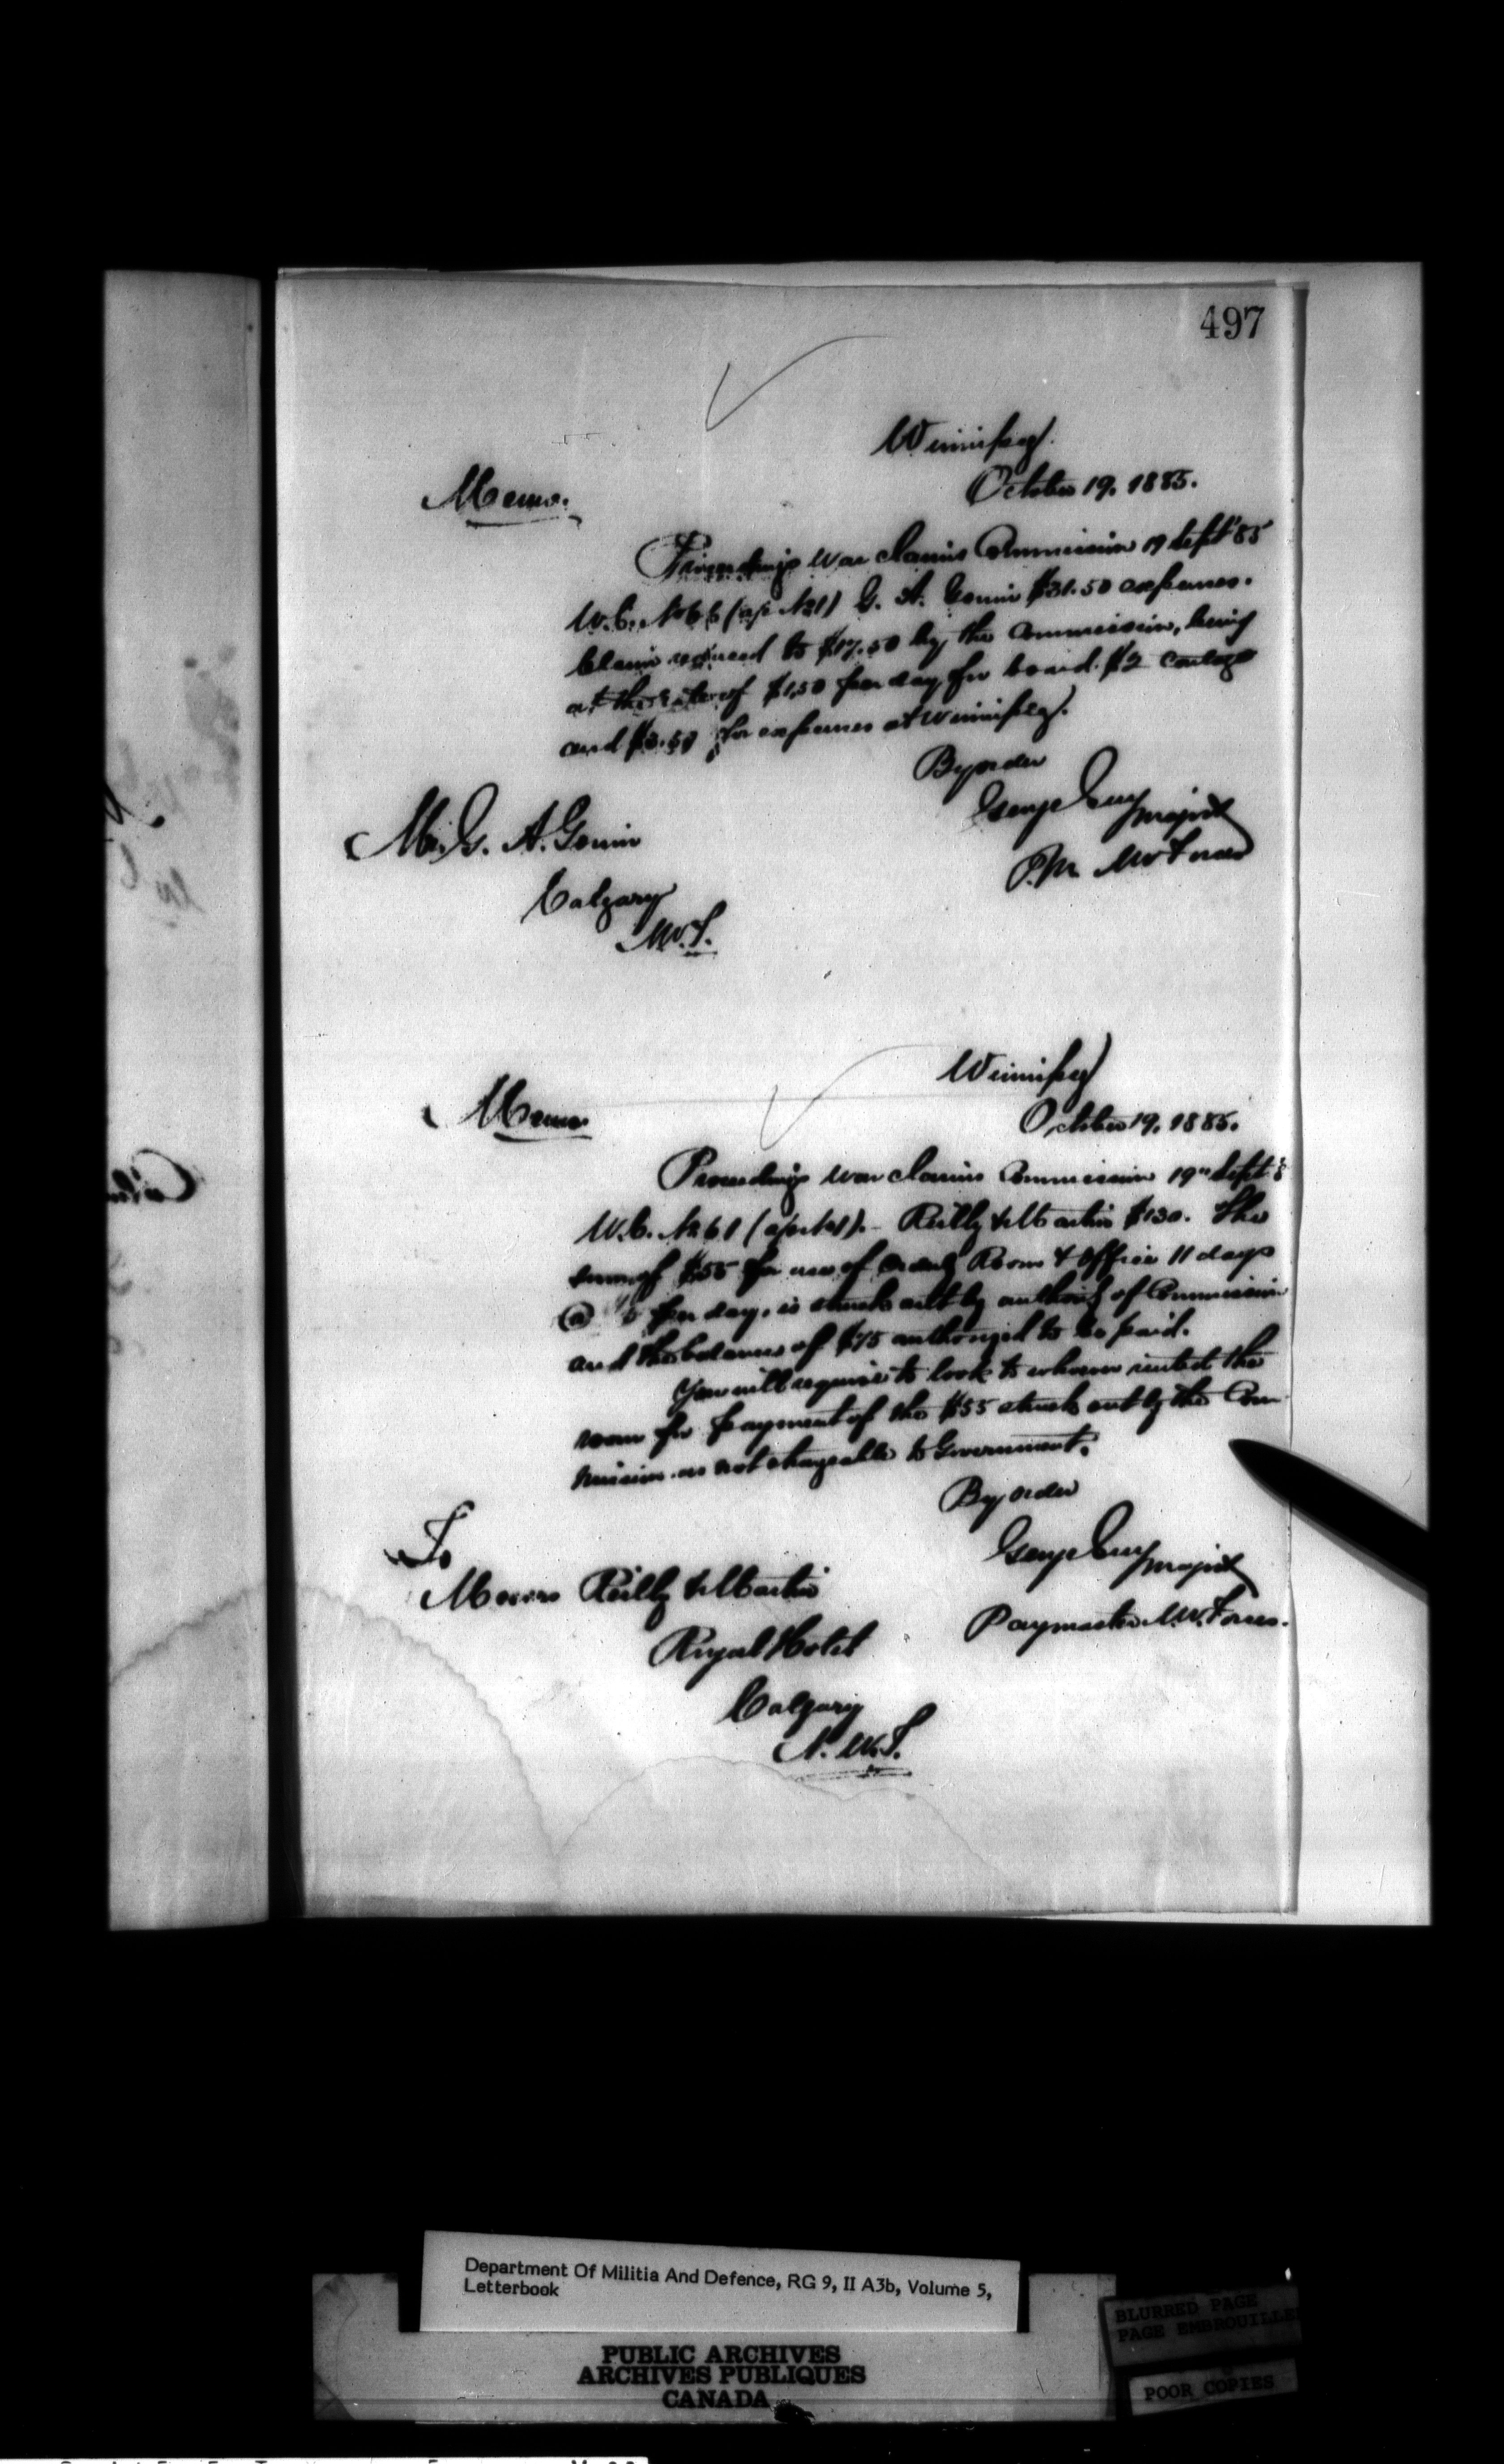 497
Winnipeg.
October 19. 1885.
Memo.
Proceedings War Claims Commission 19 Sept '85
W.C. No 66 (ap. No 1) G. A. $31.50 expenses.
Claim reduced to $17.50 by the Commission, being
at the rate of $1.50 per day for board. $2 cartage
and $3.50 for expenses at Winnipeg.
By order
George Guy Major
P.M. NW Forces
Mr. G. A.
Calgary
NW.T.
Winnipeg
October 19. 1885.
Memo.
Proceedings War Claims Commission 19" Sept 8
W.C. No 61 (ap. No 1). - Reilly & Martin $130. The
sum of $55 for use of Orderly Room & Office 11 days
@ $5 per day, is struck out by authority of Commission
and the balance of $75 authorized to be paid.
You will require to look to whoever rented the
room for payment of the $55 struck out by the Com-
mission as not chargeable to Government.
By order
George Guy Major
Paymaster N.W. Forces.
To
Messrs Reilly & Martin
Royal Hotel
Calgary
N.W.T.
Department Of Militia And Defence, RG 9, II A3b, Volume 5,
Letterbook
BLURRED PAGE
PAGE EMBROUILLE
PUBLIC ARCHIVES
ARCHIVES PUBLIQUES
CANADA
POOR COPIES